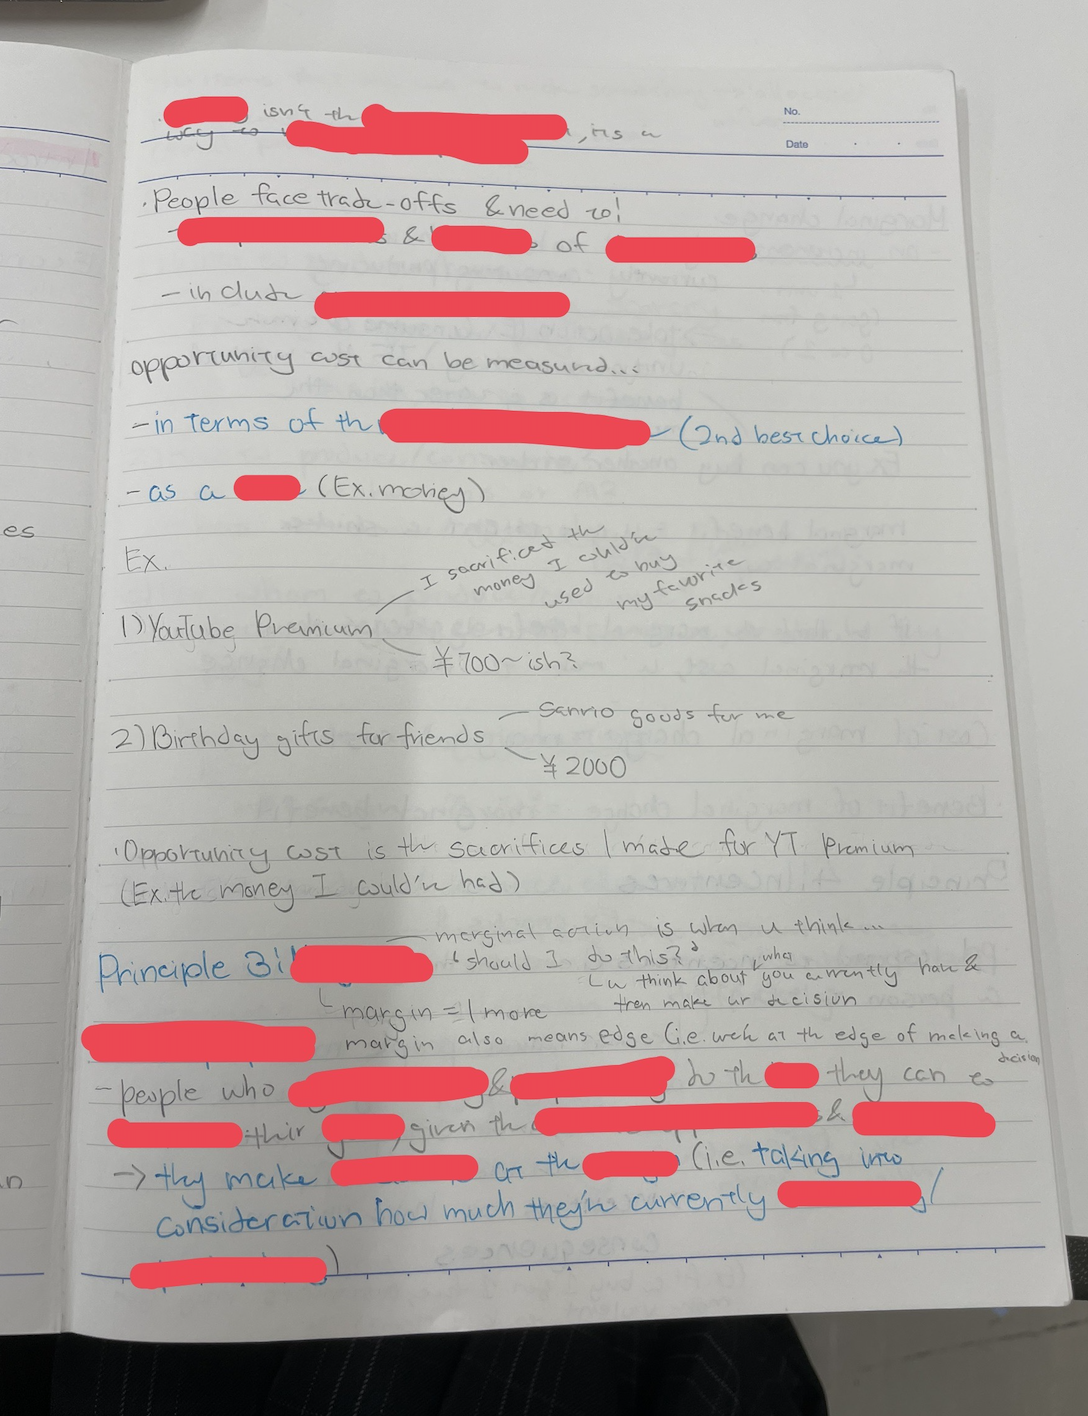 isn't th
way to , its a
No.
Date
· People face trade-offs & need to!
- & of
- include
opportunity cost can be measured...
- in terms of th (2nd best choice)
- as a (Ex. money)
Ex.
I sacrificed th
money I could'v
used to buy
my favorite
snacks
1) YouTube Premium
¥700~ish?
Sanrio goods for me
2) Birthday gifts for friends
¥2000
· Opportunity cost is th sacrifices I made for YT Premium
(Ex. the money I could'v had)
marginal action is when u think...
Principle 3:
"should I do this?"
u think about what you currently have &
then make ur decision
margin = 1 more
margin also means edge (i.e. we'r at th edge of making a decision
- people who & do th they can to
their , given th &
→ thy make at th (i.e. taking into
consideration how much they'r currently /
)
es